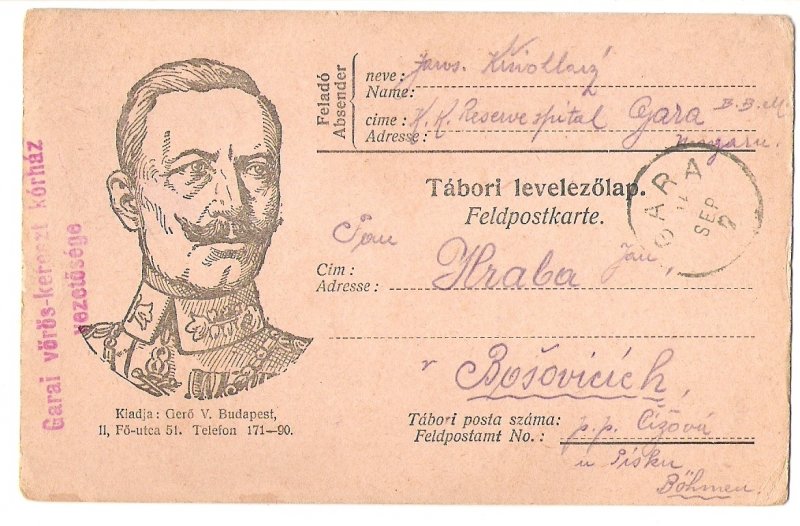 Garai vörös-kereszt kórház
vezetősége
Feladó
Absender
neve: Jaros.
Name:
cime: K. K. Reservespital Gara B. B. M.
Adresse: Ungarn.
Tábori levelezőlap.
Feldpostkarte.
GARA
SEP
2
Pan
Cím: Hraba Jan,
Adresse:
v Bošovicích,
Tábori posta száma:
Feldpostamt No.: p. p. Čížová
u Písku
Böhmen.
Kiadja: Gerő V. Budapest,
II, Fő-utca 51. Telefon 171—90.